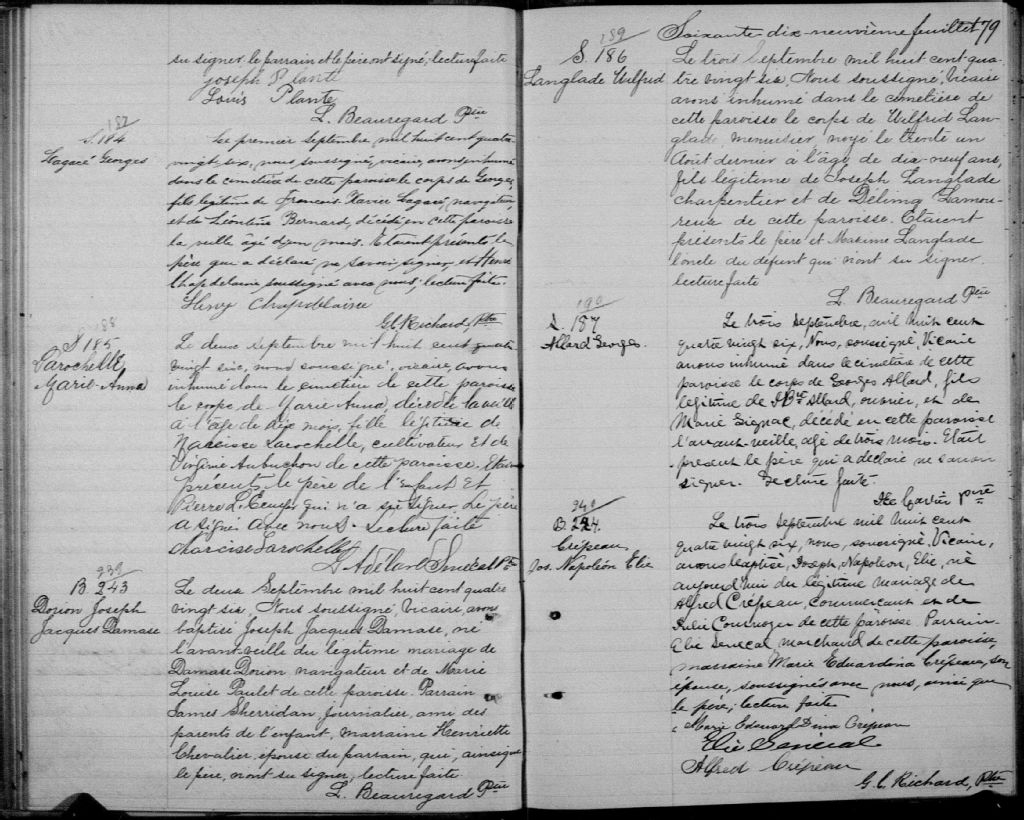 su signer, le parrain et le père ont signé; lecture faite
Joseph Plant
Louis Plante
L. Beauregard Ptre
187
S. 184
Lagacé Georges
Le premier septembre mil huit cent quatre
vingt six, nous soussigné, vicaire, avons inhumé
dans le cimetière de cette paroisse le corps de Georges,
fils légitime de Francois Xavier Lagacé, navigateur,
et de Léontine Bernard, décédé en cette paroisse
la veille âgé d'un mois. Etaient présents le
père qui a déclaré ne savoir signer, et Henri
Chapdelaine soussigné avec nous; lecture faite.
Henry Chapdelaine
G. C. Richard, Ptre
188
S 185
Larochelle
Marie-Anna
Le deux septembre mil huit cent quatre
vingt six, nous soussigné, vicaire, avons
inhumé dans le cimetière de cette paroisse
le corps de Marie Anna, décédée la veille
à l'âge de dix mois, fille légitime de
Narcisse Larochelle, cultivateur et de
Virginie Aubuchon de cette paroisse. Etaient
présents le père de l'enfant et
Pierre qui n'a su signer. Le père
a signé avec nous. Lecture faite
Narcisse Larochelle
Adélard Sénécal Ptre
939
B 243
Dorion Joseph
Jacques Damase
Le deux Septembre mil huit cent quatre
vingt six. Nous soussigné, Vicaire, avons
baptisé Joseph Jacques Damase, né
l'avant-veille du légitime mariage de
Damase Dorion navigateur et de Marie
Louise Paulet de cette paroisse. Parrain
James Sherridan journalier, ami des
parents de l'enfant, marraine Henriette
Chevalier, épouse du parrain, qui, ainsi que
le père, n'ont su signer, lecture faite
L. Beauregard Ptre
Soixante dix-neuvième feuillet 79
189
S. 186
Langlade Wilfrid
Le trois Septembre mil huit cent qua-
tre vingt six. Nous soussigné, Vicaire
avons inhumé dans le cimetière de
cette paroisse le corps de Wilfrid Lan-
glade, menuisier, noyé le trente un
Août dernier à l'âge de dix-neuf ans,
fils légitime de Joseph Langlade
charpentier et de Délima Lamou-
reux de cette paroisse. Etaient
présents le père et Maxime Langlade
l'oncle du défunt qui n'ont su signer.
lecture faite
L. Beauregard Ptre
190
S. 187
Allard Georges.
Le trois septembre, mil huit cent
quatre vingt six, Nous, soussigné, Vicaire
avons inhumé dans le cimetière de cette
paroisse le corps de Georges Allard, fils
légitime de J Bte Allard, ouvrier, et de
Marie Gignac, décédé en cette paroisse
l'avant-veille, agé de trois mois. Etait
present le père qui a déclaré ne savoir
signer. Lecture faite.
Cartier ptre
940
B. 244.
Crépeau
Jos. Napoléon Elie
Le trois septembre mil huit cent
quatre vingt six, nous, soussigné, Vicaire,
avons baptisé, Joseph, Napoléon, Elie, né
aujourd'hui du légitime mariage de
Alfred Crépeau, Commercant et de
Julie Cournoyer de cette paroisse. Parrain
Elie Senecal marchand de cette paroisse,
marraine Marie Eduardina Crépeau, son
épouse, soussignés avec nous, ainsi que
le père; lecture faite
Marie Edouard Dina Crépeau
Elie Sénécal
Alfred Crépeau
G. C. Richard, Ptre